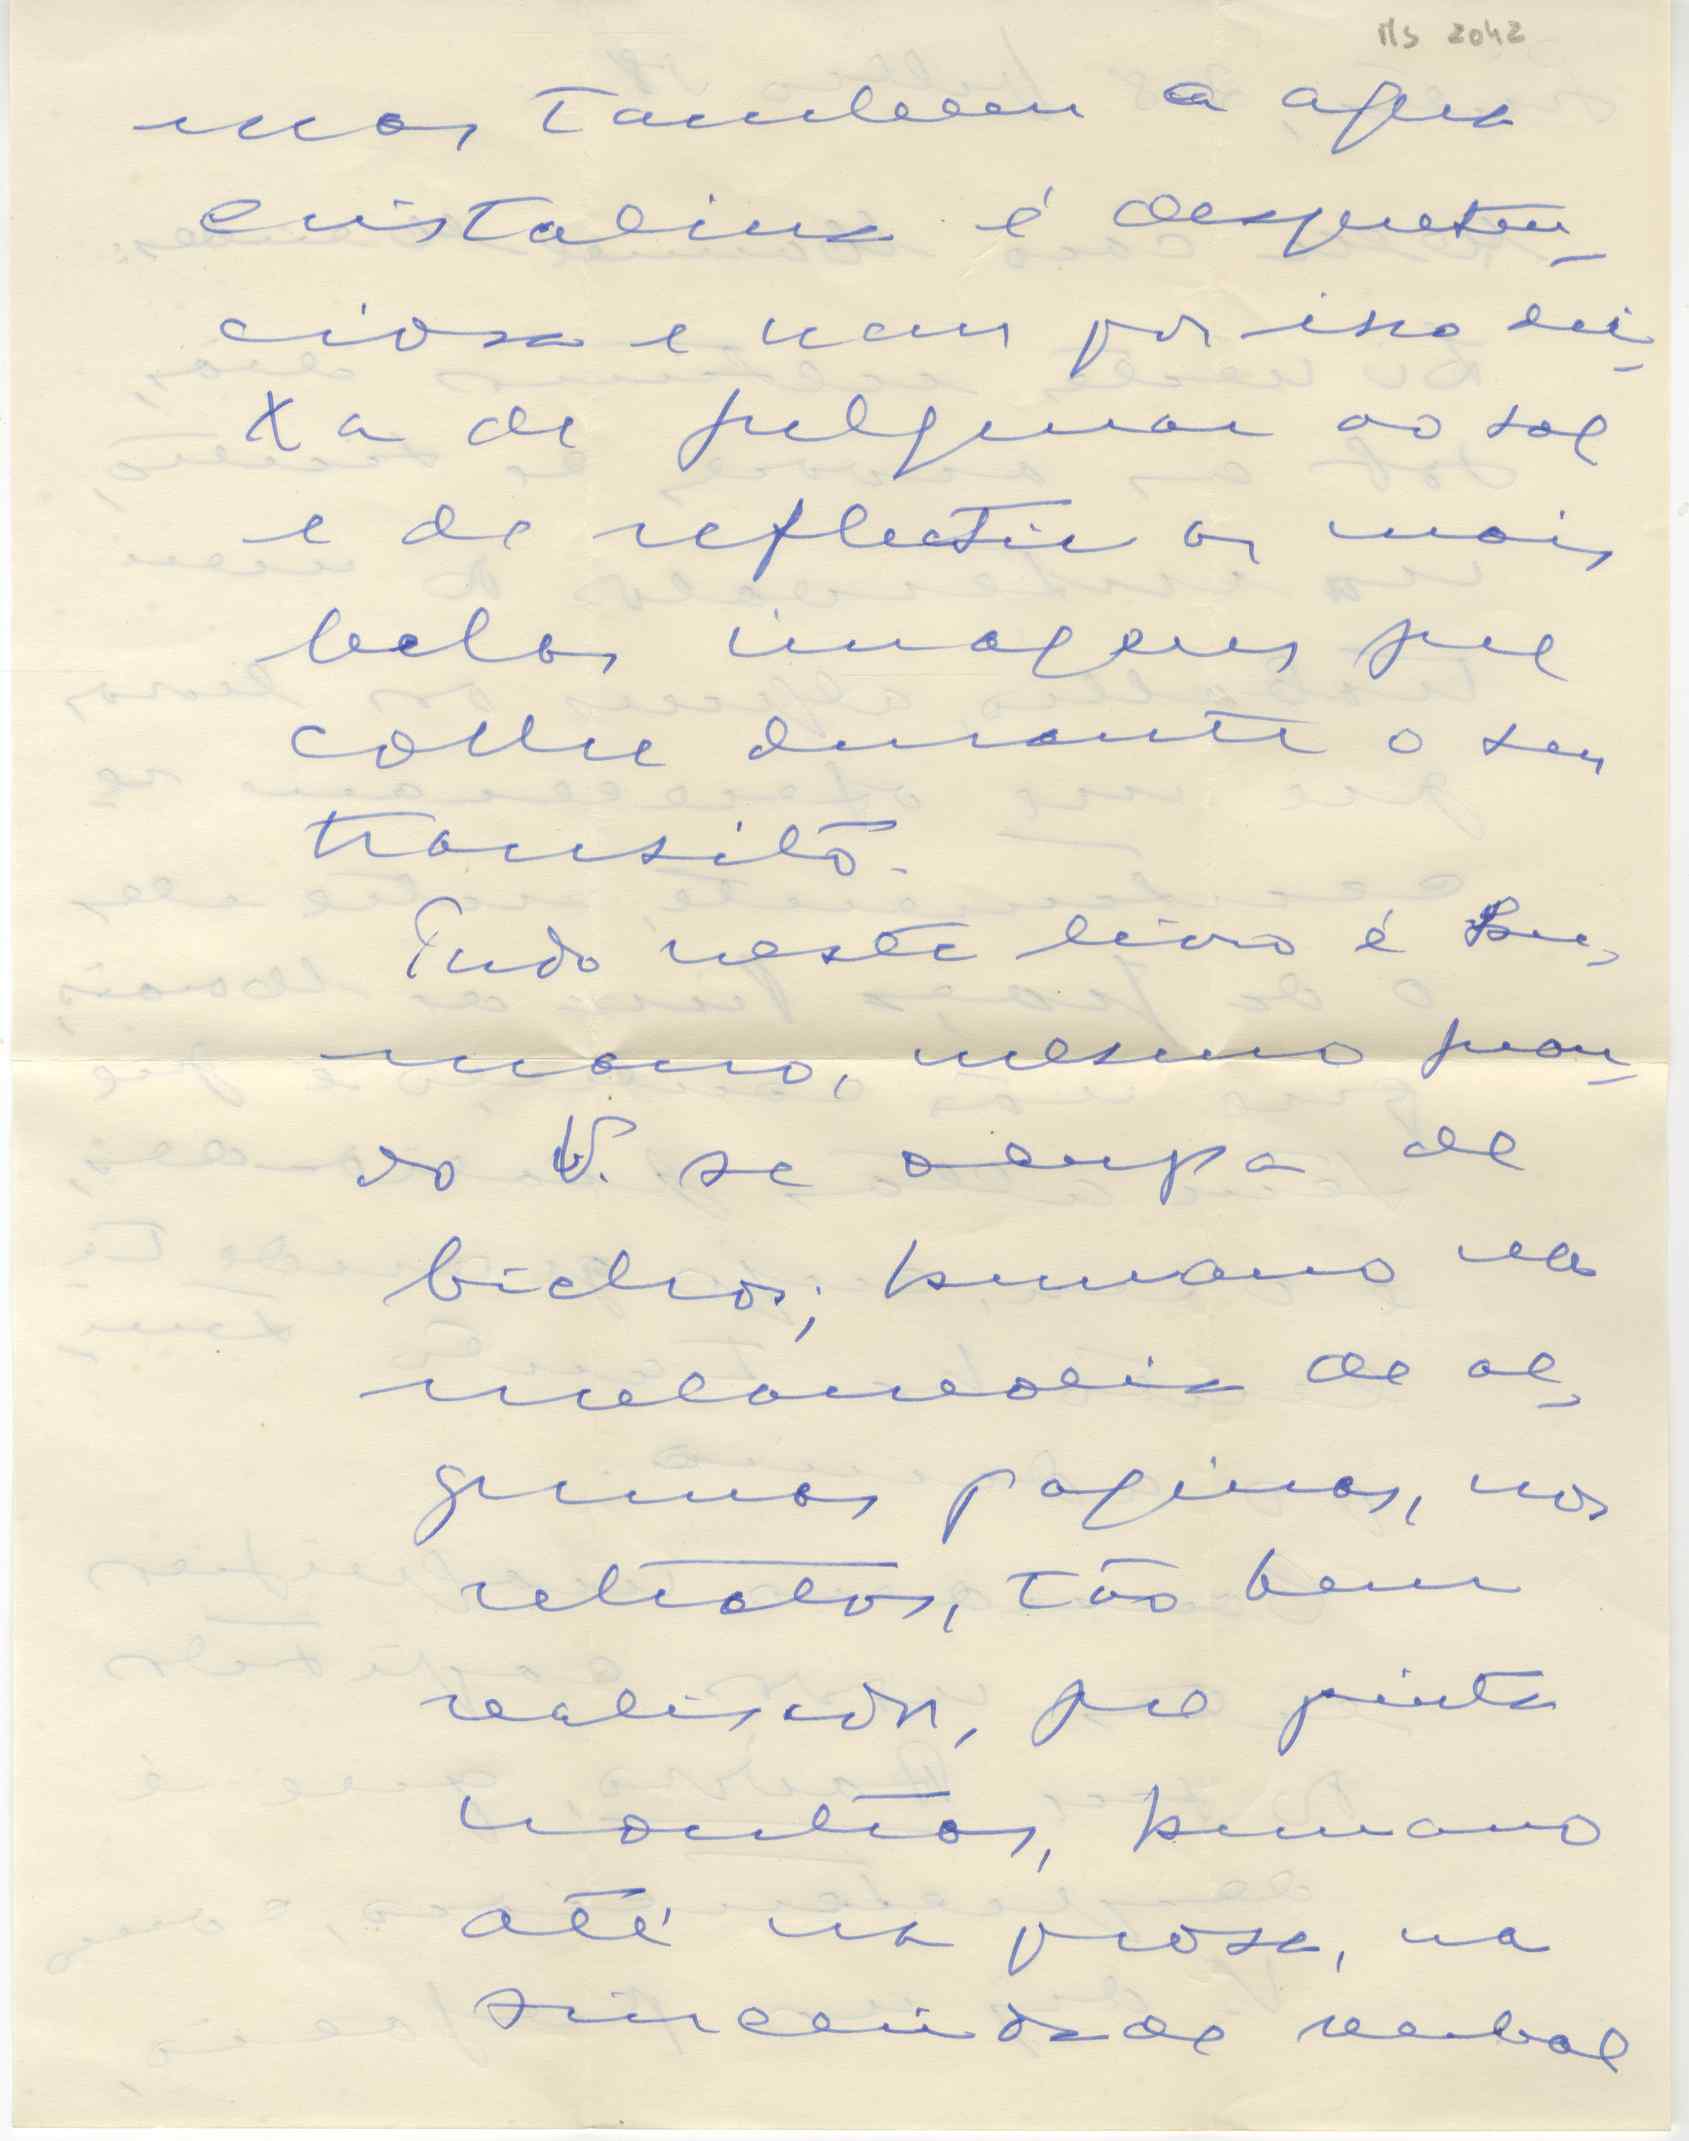 MS 2042
mas tambem a agua
cristalina é despreten-
ciosa e nem por isso dei-
xa de fulgurar ao sol
e de reflectir as mais
belas imagens que
colhe durante o seu
transito.
Tudo neste livro é hu-
mano, mesmo quan-
do V. se ocupa de
bichos; humano na
melancolia de al-
gumas paginas, nos
retratos, tão bem
realisados, que pinta
noutras, humano
até na prosa, na
sinceridade verbal